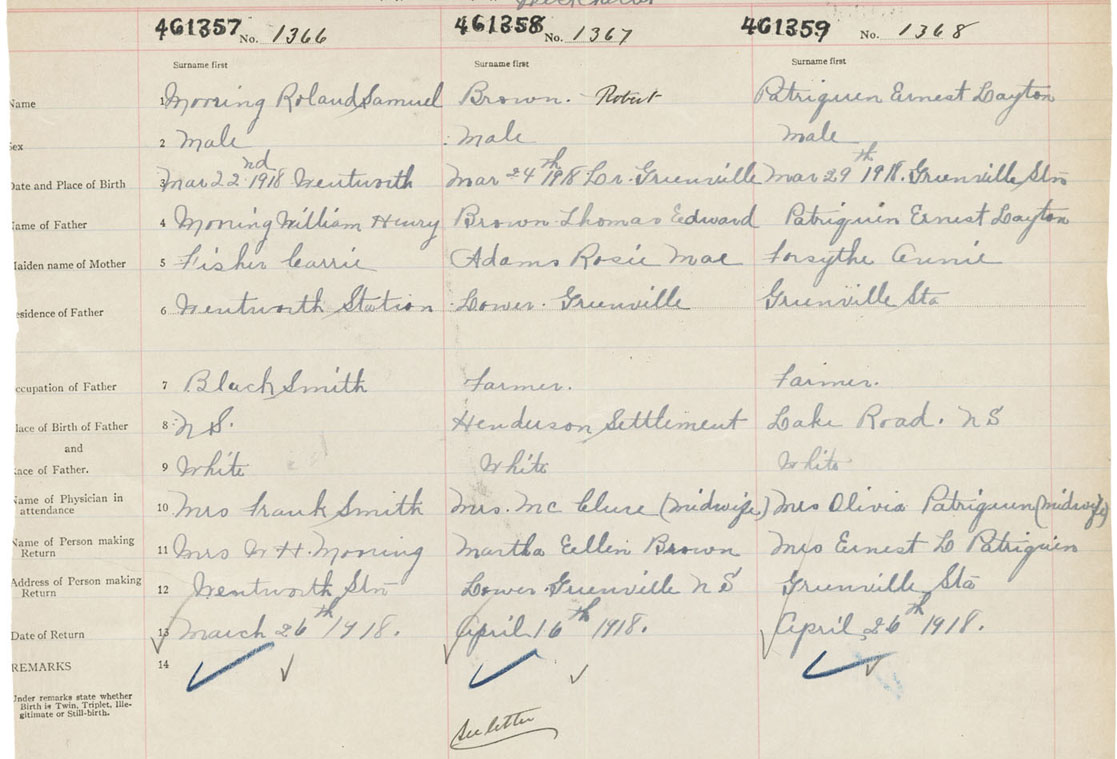 461357 No. 1366 461358 No. 1367 461359 No. 1368
Surname first Surname first Surname first
Name 1 Mooring Roland Samuel Brown. Robert Patriquen Ernest Layton
ex 2 Male Male Male
Date and Place of Birth 3 Mar 22nd 1918 Wentworth Mar 24th 1918 Lr. Greenville Mar 29th 1918. Greenville Stn
ame of Father 4 Mooring William Henry Brown Thomas Edward Patriquin Ernest Layton
aiden name of Mother 5 Fisher Carrie Adams Rosie Mae Forsythe Annie
esidence of Father 6 Wentworth Station Lower Greenville Greenville Sta
ccupation of Father 7 Black Smith Farmer. Farmer.
lace of Birth of Father 8 N S. Henderson Settlement Lake Road. N S
and
ace of Father. 9 White White White
Name of Physician in
attendance 10 Mrs Frank Smith Mrs. Mc Clure (Midwife) Mrs Olivia Patriquen (Midwife)
Name of Person making
Return 11 Mrs W H. Mooring Martha Eellen Brown Mrs Ernest L Patriquin
Address of Person making
Return 12 Wentworth Stn Lower Greenville N S Greenville Sta
Date of Return 13 March 26th 1918. April 16th 1918. April 26th 1918.
REMARKS 14
Under remarks state whether
Birth is Twin, Triplet, Ille-
gitimate or Still-birth.
See letter